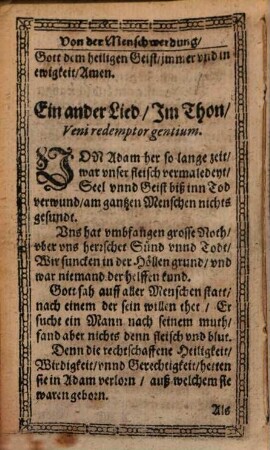 Von der Menschwerdung/
Gott dem heiligen Geist/jmmer vnd in
ewigkeit/Amen.
Ein ander Lied/Im Thon/
Veni redemptor gentium.
VON Adam her so lange zeit/
war vnser fleisch vermaledeyt/
Seel vnnd Geist biß inn Tod
verwund/am gantzen Menschen nichts
gesundt.
Vns hat vmbfangen grosse Noth/
vber vns herrschet Sünd vnnd Todt/
Wir suncken in der Höllen grund/vnd
war niemand der helffen kund.
Gott sah auff aller Menschen statt/
nach einem der sein willen thet/Er
sucht ein Mann nach seinem muth/
fand aber nichts denn fleisch vnd blut.
Denn die rechtschaffene Heiligkeit/
Wirdigkeit/vnnd Gerechtigkeit/hetten
sie in Adam verlorn/auß welchem sie
waren geborn.
Als